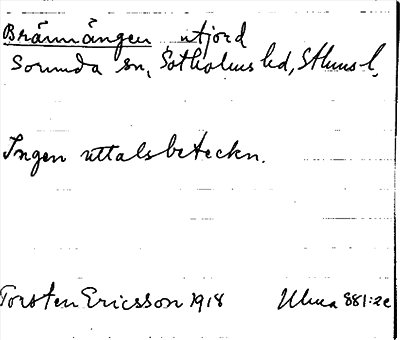 Brännängen utjord
Sorunda sn, Sotholms hd, Sthms l.
Ingen uttalsbeteckn.
Torsten Ericsson 1918 Ulma 881:2c